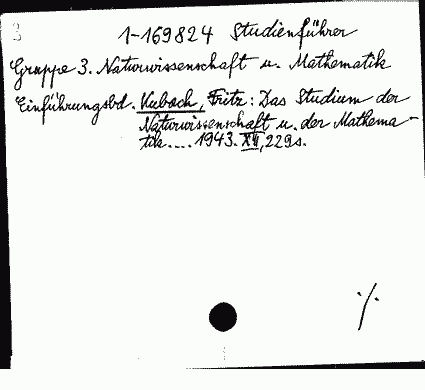 1-169824 Studienführer
Gruppe 3. Naturwissenschaft u. Mathematik
Einführungsbd. Kubach, Fritz: Das Studium der
Naturwissenschaft u. der Mathema-
tik.... 1943. XVI, 229 s.
·/·